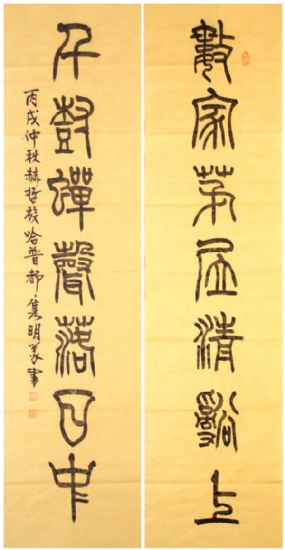 數家茅屋清谿上
千樹蟬聲落日中
丙戌仲秋赫哲族哈普都·隽明篆書